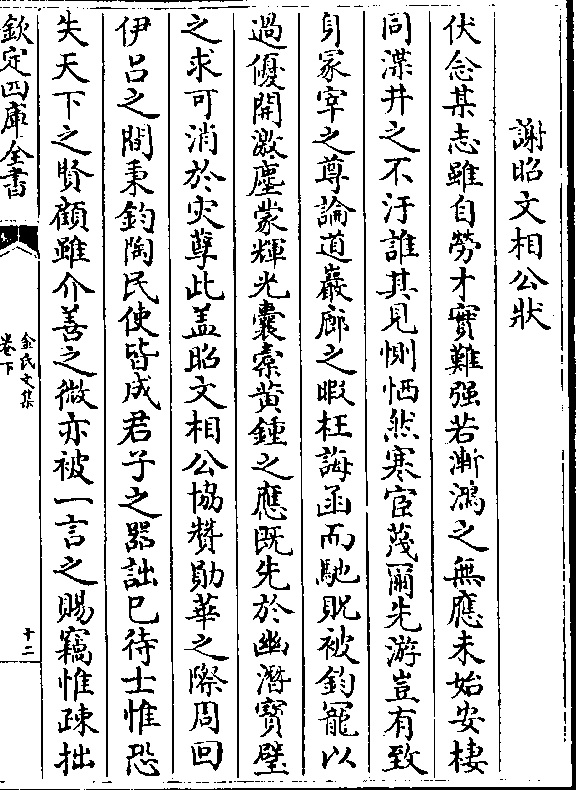 謝昭文相公狀
伏念某志雖自勞才實難强若漸鴻之無應未始安棲
同渫井之不汙誰其見惻恓然寒宦蔑爾先游豈有致
身冢宰之尊論道巖廊之暇枉誨函而馳貺被鈞寵以
過優開激塵蒙輝光囊橐黄鍾之應既先於幽潛寶璧
之求可消於灾孽此盖昭文相公協贊勛華之際周回
伊吕之間秉鈞陶民使皆成君子之器詘已待士惟恐
失天下之賢顧雖介善之微亦被一言之賜竊惟疎拙
欽定四庫全書
金氏文集
卷下
十二